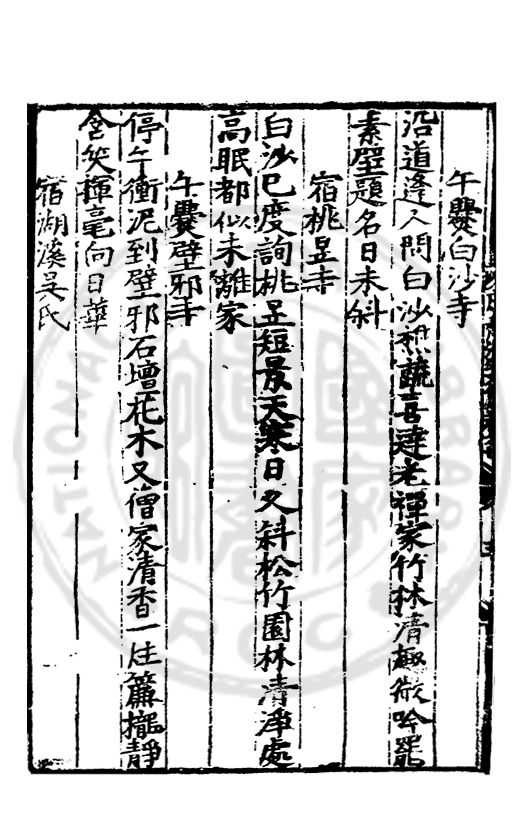 午爨白沙寺
沿道逢人問白沙想蔬喜達老禪家竹林清趣微吟罷
素壁題名日未斜
宿桃昱寺
白沙已度詢桃昱短景天寒日又斜松竹園林清淨處
高眠都似未離家
午爨壁邪寺
停午衝泥到壁邪石壇花木又僧家清香一炷簾攏靜
含笑揮毫向日華
宿湖溪吴氏